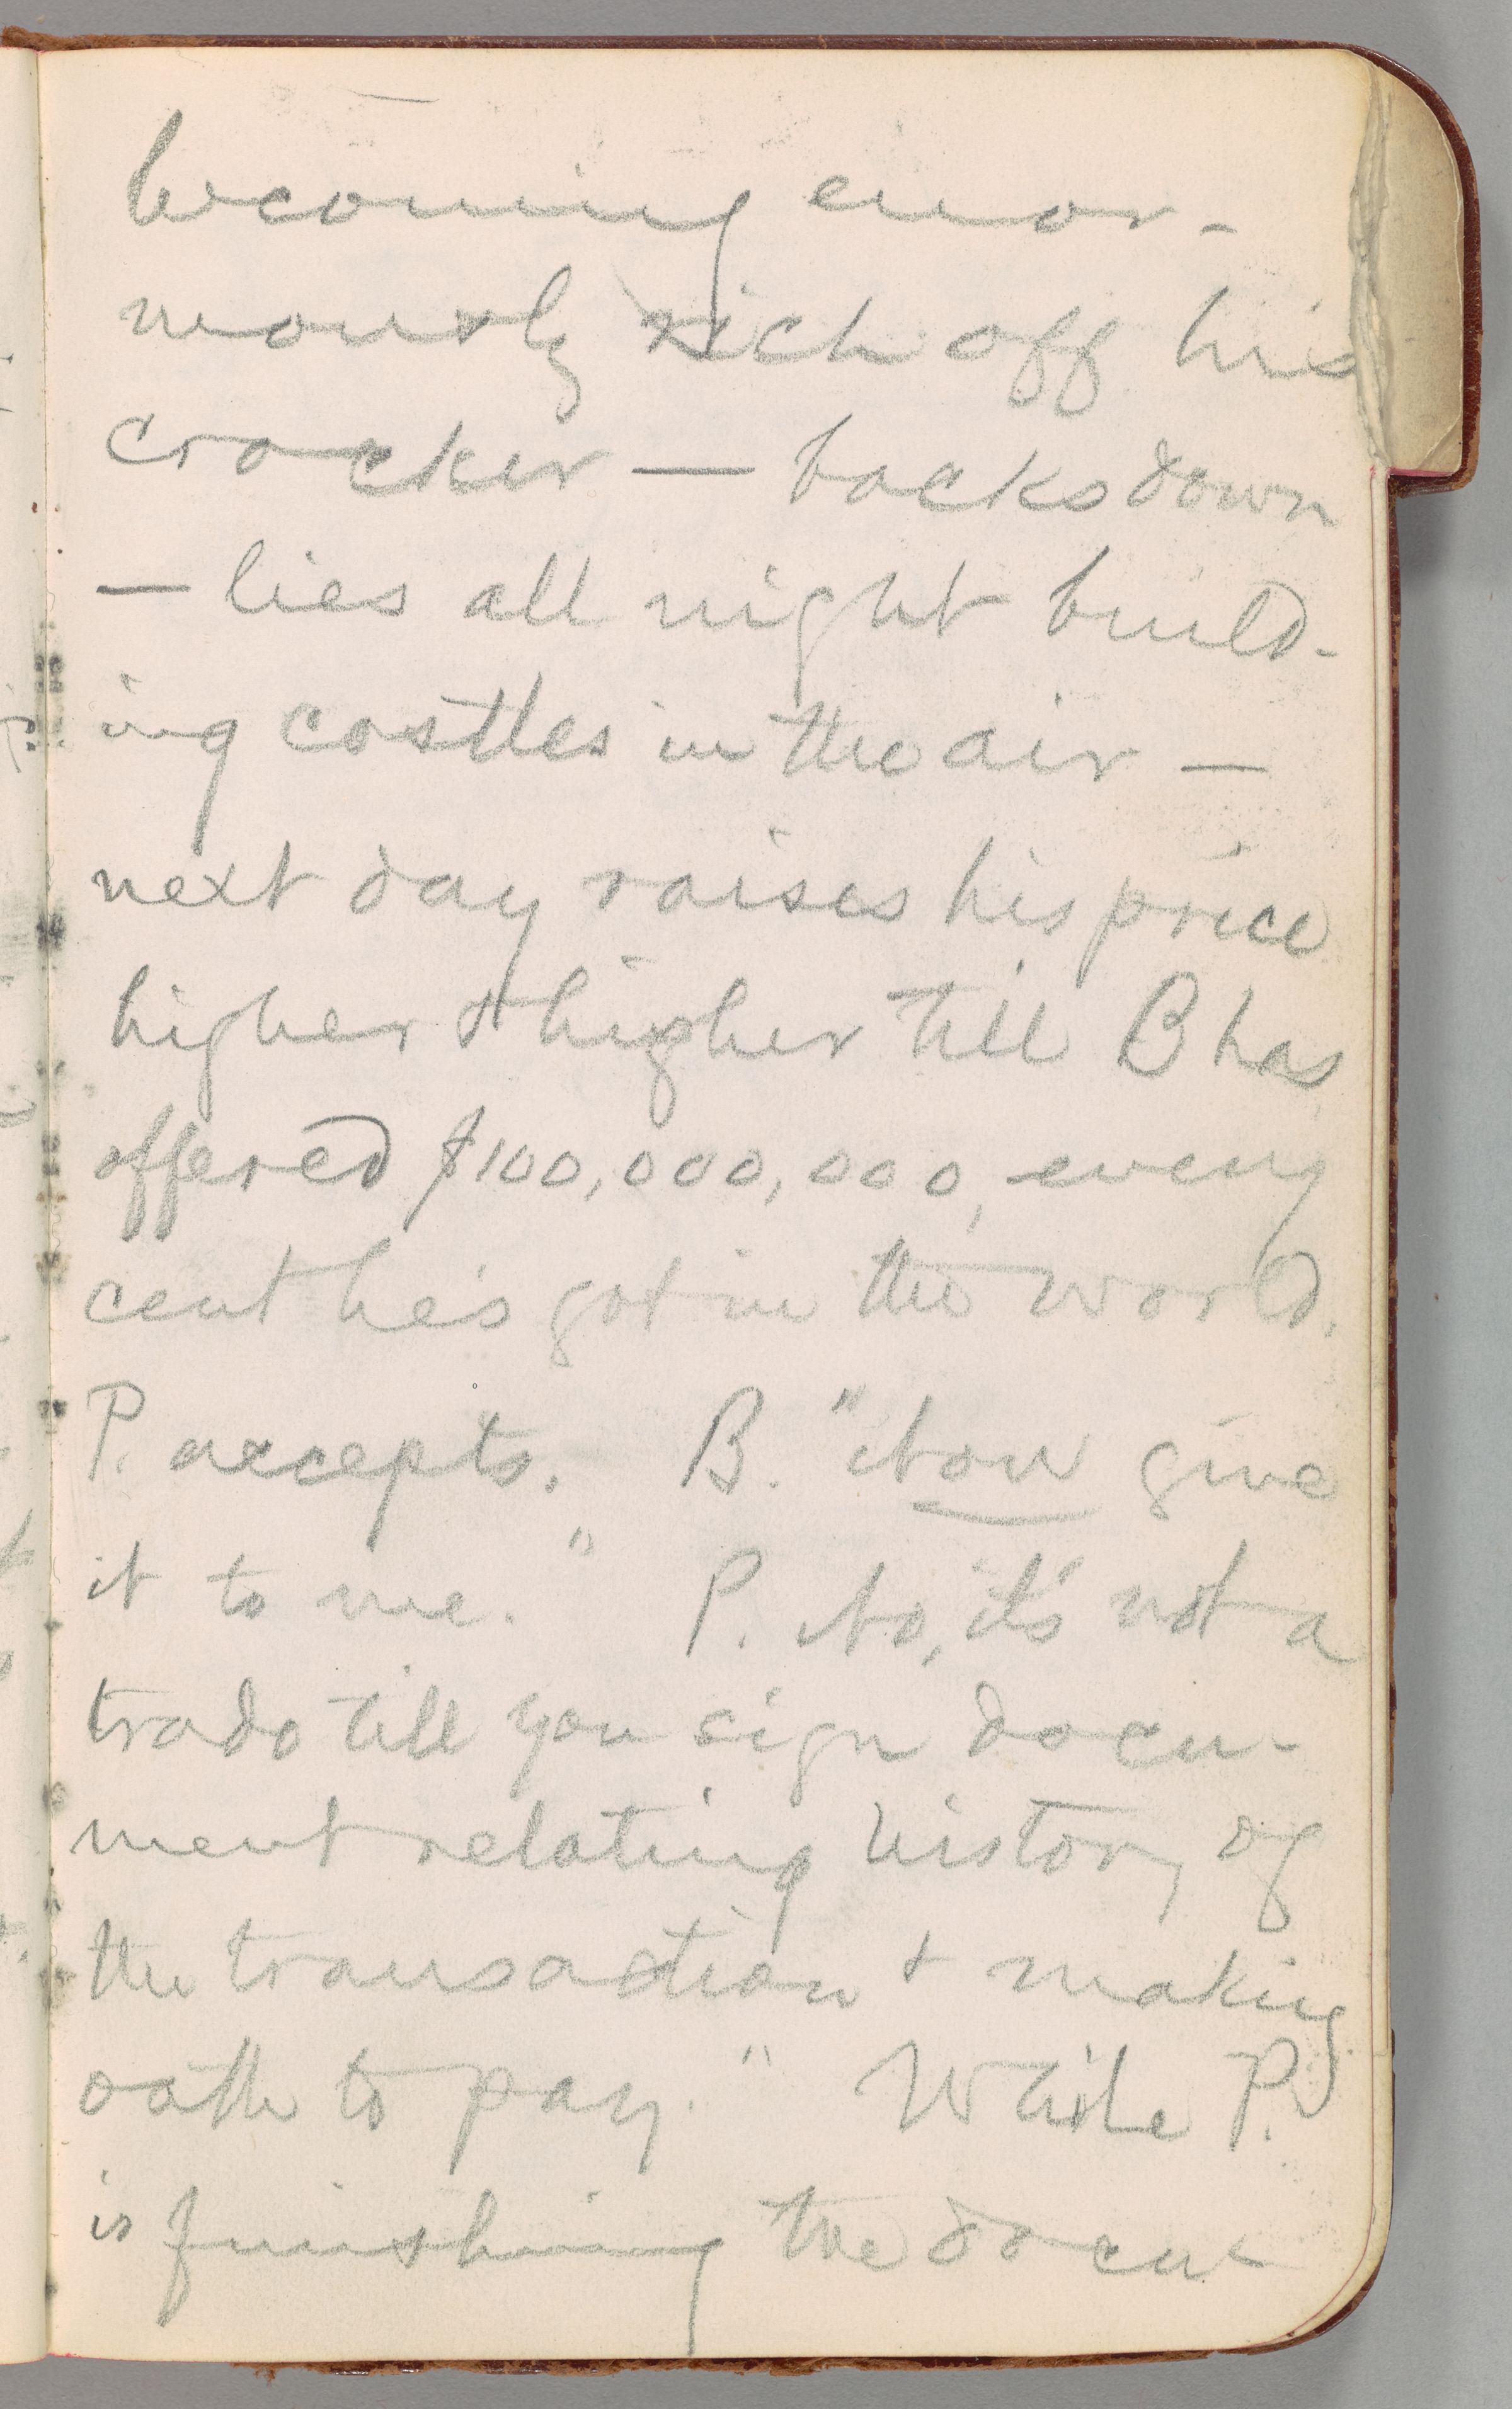 becoming enor-
mously rich off his
cracker — backs down
— lies all night build-
ing castles in the air —
next day raises his price
higher & higher till B has
offered $100,000,000, every
cent he's got in the world.
P. accepts. B. "Now give
it to me." P. No, it's not a
trade till you sign docu-
ment relating history of
the transaction & making
oath to pay." While P.
is finishing the docu-